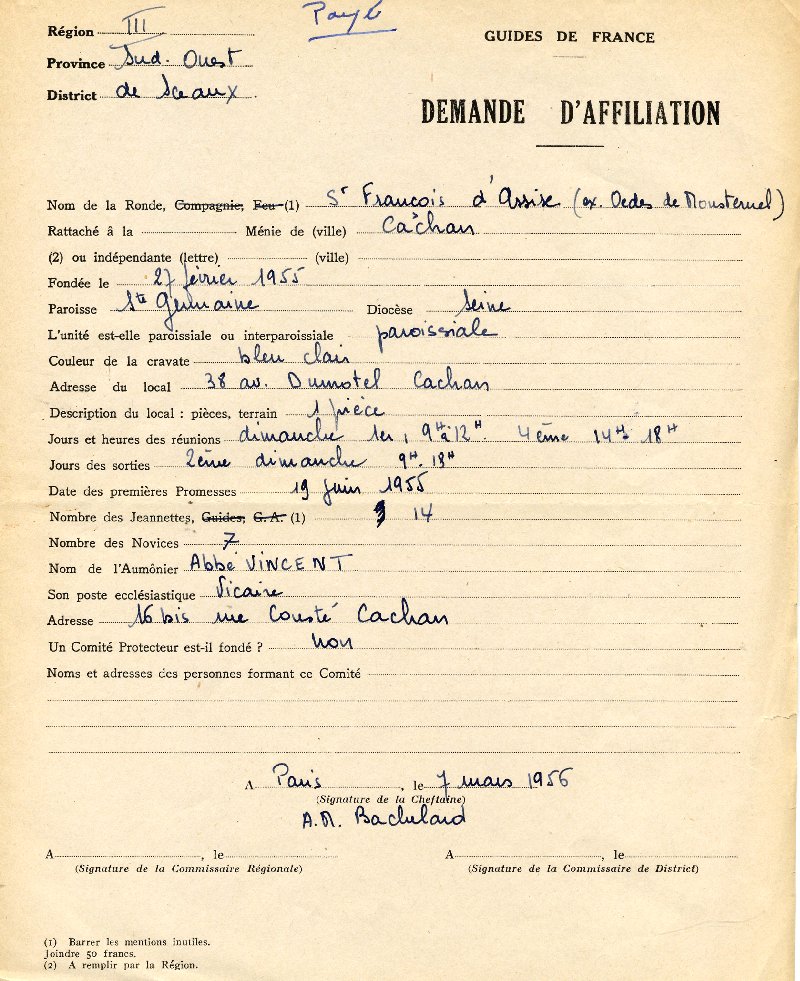 Payé
Région III
Province Sud-Ouest
District de Sceaux
GUIDES DE FRANCE
DEMANDE D'AFFILIATION
Nom de la Ronde, Compagnie, Feu (1) St François d'Assise (ex. Oedes de Monsteruel)
Rattaché â la Ménie de (ville) Cachan
(2) ou indépendante (lettre) (ville)
Fondée le 27 février 1955
Paroisse Ste Germaine Diocèse Seine
L'unité est-elle paroissiale ou interparoissiale paroissiale
Couleur de la cravate bleu clair
Adresse du local 38 av. Dumotel Cachan
Description du local : pièces, terrain 1 pièce
Jours et heures des réunions dimanche 1er, 9H à 12H. 4ème 14H 18H
Jours des sorties 2ème dimanche 9H. 18H
Date des premières Promesses 19 juin 1955
Nombre des Jeannettes, Guides, G.A. (1) 14
Nombre des Novices 7
Nom de l'Aumônier Abbé VINCENT
Son poste ecclésiastique Vicaire
Adresse 16 bis rue Cousté Cachan
Un Comité Protecteur est-il fondé ? non
Noms et adresses des personnes formant ce Comité
A Paris, le 7 mars 1956
(Signature de la Cheftaine)
A.M. Bachelard
A , le
(Signature de la Commissaire Régionale)
A , le
(Signature de la Commissaire de District)
(1) Barrer les mentions inutiles.
Joindre 50 francs.
(2) A remplir par la Région.